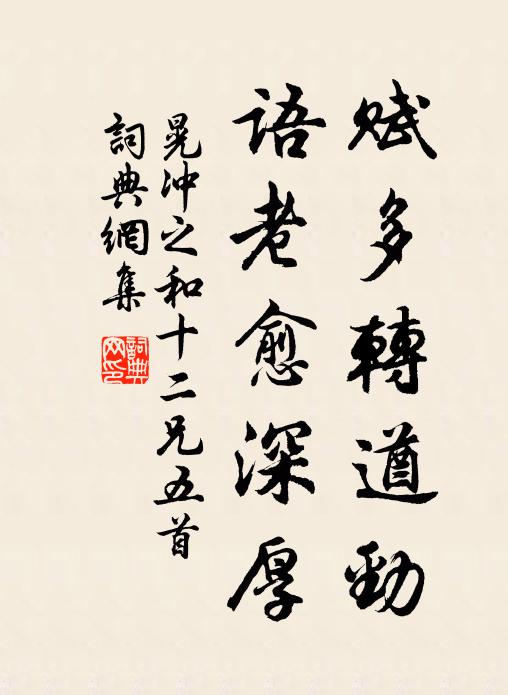 賦多轉遒勁
語老愈深厚
晁沖之和十二兄五首
詞典網集
詞典網印